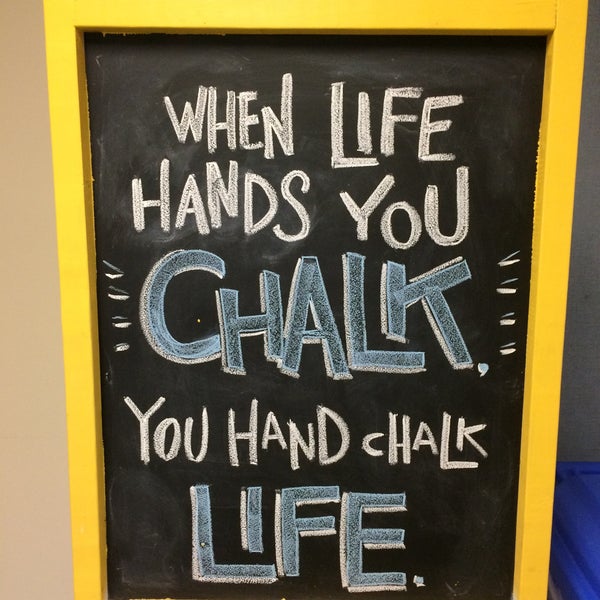 WHEN LIFE
HANDS YOU
CHALK,
YOU HAND CHALK
LIFE.